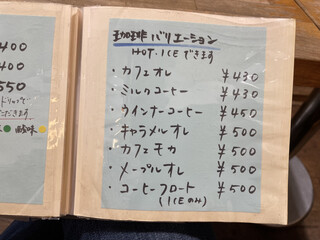 400
400
550
珈琲バリエーション
HOT・ICEできます
・カフェオレ ¥430
・ミルクコーヒー ¥430
・ウインナーコーヒー ¥450
・キャラメルオレ ¥500
・カフェモカ ¥500
・メープルオレ ¥500
・コーヒーフロート ¥500
(ICEのみ)